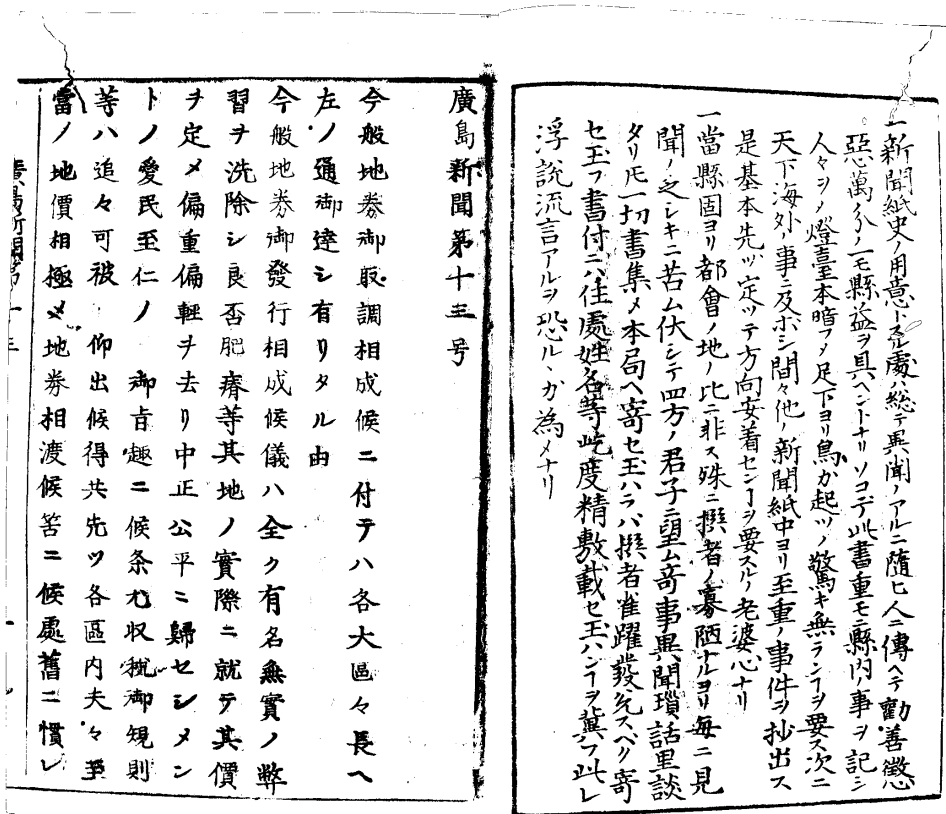 一新聞紙史ノ用意トスル處ハ総テ異聞ノアルニ随ヒ人ニ傳ヘテ勸善懲
惡萬分ノ一モ縣益ヲ具ヘントナリソコデ此書重モニ縣内ノ事ヲ記シ
人々ヲノ燈臺本暗フメ足下ヨリ鳥が起ツノ驚キ無ランヿヲ要ス次ニ
天下海外ノ事ニ及ボシ間々他ノ新聞紙中ヨリ至重ノ事件ヲ抄出ス
是基本先ツ定ツテ方向安着センヿヲ要スルノ老婆心ナリ
一當縣固ヨリ都會ノ地ノ比ニ非ス殊ニ撰者ノ寡陋ナルヨリ毎ニ見
聞ノ乏シキニ苦ム伏シテ四方ノ君子ニ望ム奇事異聞瑣話里談
タリ𪜈一切書集メ本局ヘ寄セ玉ハラバ撰者雀躍發兌スベク寄
セ玉フ書付ニハ住處姓名等此度精敷載セ玉ハンヿヲ冀フ此レ
浮説流言アルヲ恐ルヽか為メナリ
廣島新聞第十三号
今般地券御取調相成候ニ付テハ各大區々長ヘ
左ノ通御達シ有リタル由
今般地券御發行相成候儀ハ全ク有名無實ノ弊
習ヲ洗除シ良否肥瘠等其地ノ實際ニ就テ其價
ヲ定メ偏重偏輕ヲ去リ中正公平ニ歸セシメン
トノ愛民至仁ノ 御旨趣ニ候条尤収税御規則
等ハ追々可被 仰出候得共先ツ各區内夫々至
當ノ地價相極メ地券相渡候筈ニ候處舊ニ慣レ
廣島新聞第十三